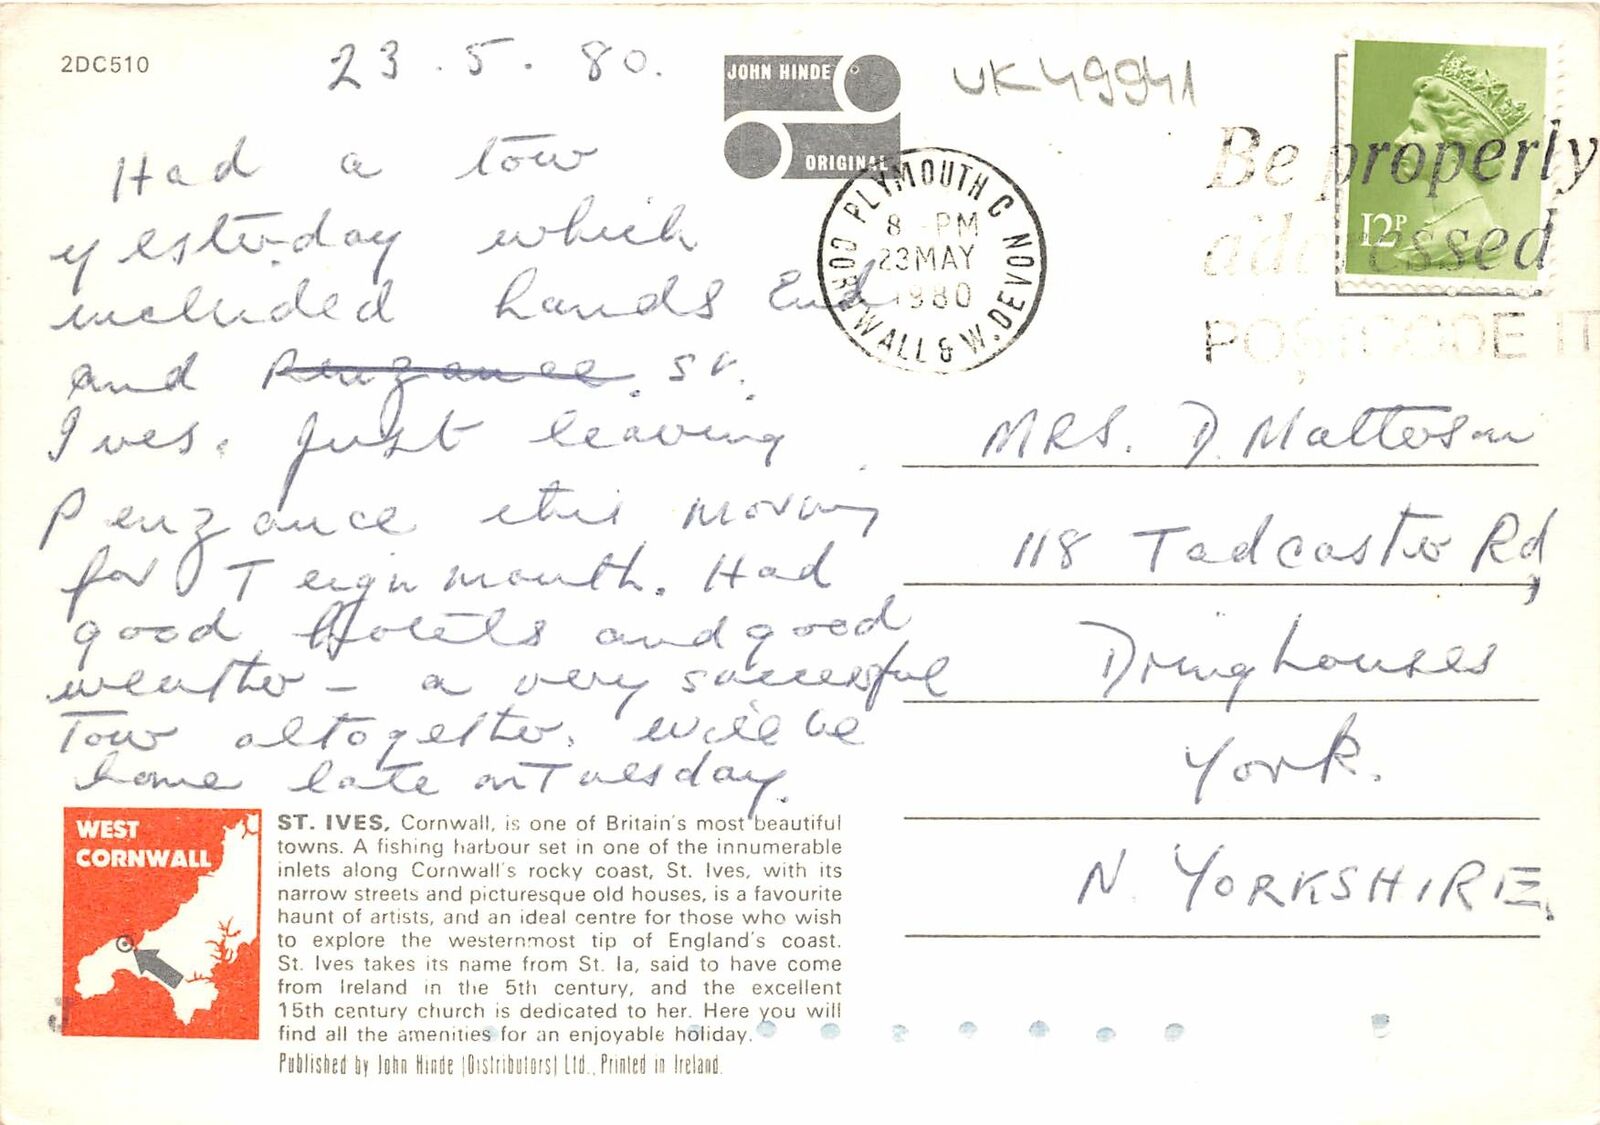 2DC510
23.5.80.
Had a tour
yesterday which
included Lands End
and Penzance. St.
Ives. Just leaving
Penzance this morning
for Teignmouth. Had
good Hotels and good
weather - a very successful
Tour altogether. Will be
home late on Tuesday.
JOHN HINDE
ORIGINAL
UK49941
PLYMOUTH C
8 - PM
23 MAY
1980
CORNWALL & W. DEVON
12P
Be properly
addressed
POSTCODE IT
MRS. D. Matterson
118 Tadcaster Rd,
Dringhouses
York.
N. YORKSHIRE.
WEST
CORNWALL
ST. IVES, Cornwall, is one of Britain's most beautiful
towns. A fishing harbour set in one of the innumerable
inlets along Cornwall's rocky coast, St. Ives, with its
narrow streets and picturesque old houses, is a favourite
haunt of artists, and an ideal centre for those who wish
to explore the westernmost tip of England's coast.
St. Ives takes its name from St. Ia, said to have come
from Ireland in the 5th century, and the excellent
15th century church is dedicated to her. Here you will
find all the amenities for an enjoyable holiday.
Published by John Hinde (Distributors) Ltd., Printed in Ireland.